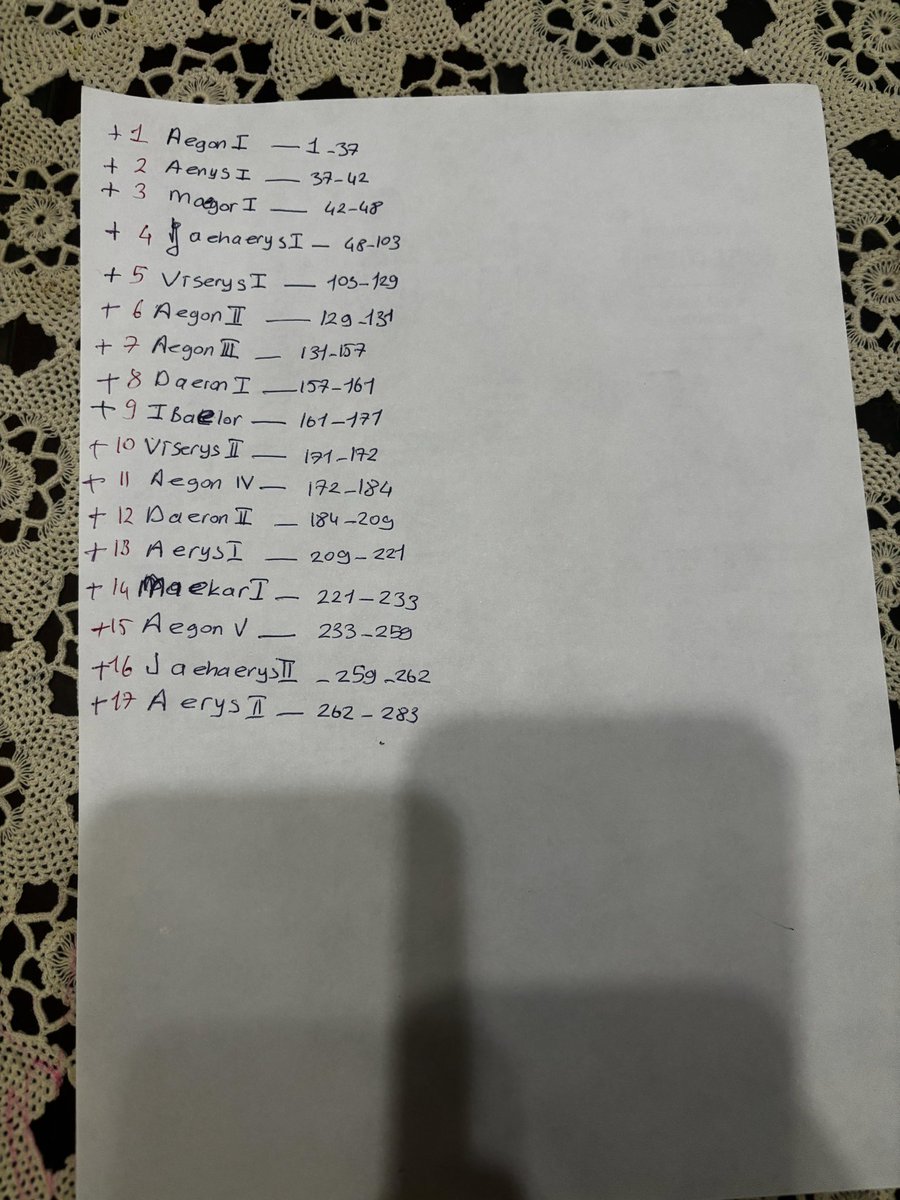 + 1 Aegon I — 1-37
+ 2 Aenys I — 37-42
+ 3 Maegor I — 42-48
+ 4 Jaehaerys I — 48-103
+ 5 Viserys I — 103-129
+ 6 Aegon II — 129-131
+ 7 Aegon III — 131-157
+ 8 Daeron I — 157-161
+ 9 I Baelor — 161-171
+ 10 Viserys II — 171-172
+ 11 Aegon IV — 172-184
+ 12 Daeron II — 184-209
+ 13 Aerys I — 209-221
+ 14 Maekar I — 221-233
+15 Aegon V — 233-259
+16 Jaehaerys II - 259-262
+17 Aerys II — 262-283